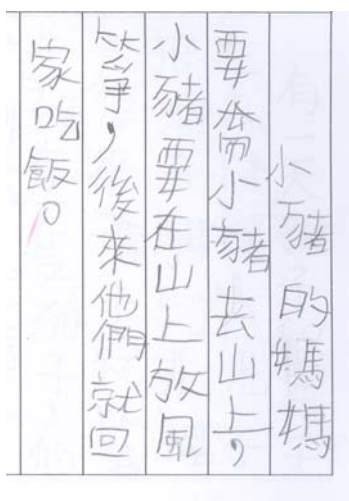 小豬的媽媽
要帶小豬去山上，
小豬要在山上放風
箏，後來他們就回
家吃飯。